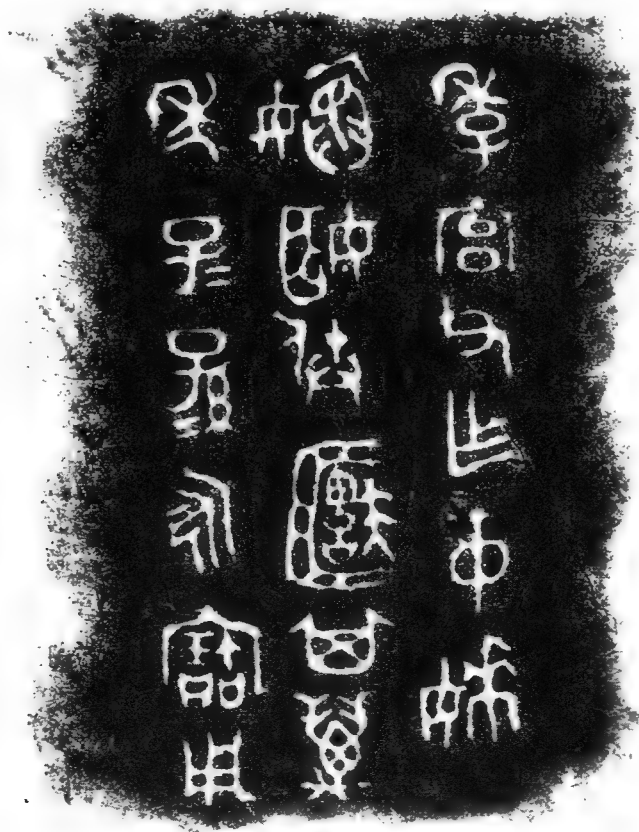 季宮父乍中姊
姬其萬
年子=孫=永寶用